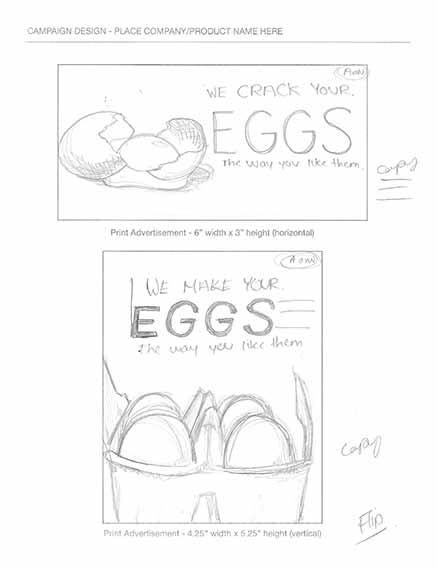 CAMPAIGN DESIGN - PLACE COMPANY/PRODUCT NAME HERE
WE CRACK YOUR.
EGGS
The way you like them.
Print Advertisement - 6" width x 3" height (horizontal)
WE MAKE YOUR.
EGGS
The way you like them
Print Advertisement - 4.25" width x 5.25" height (vertical)
Flip